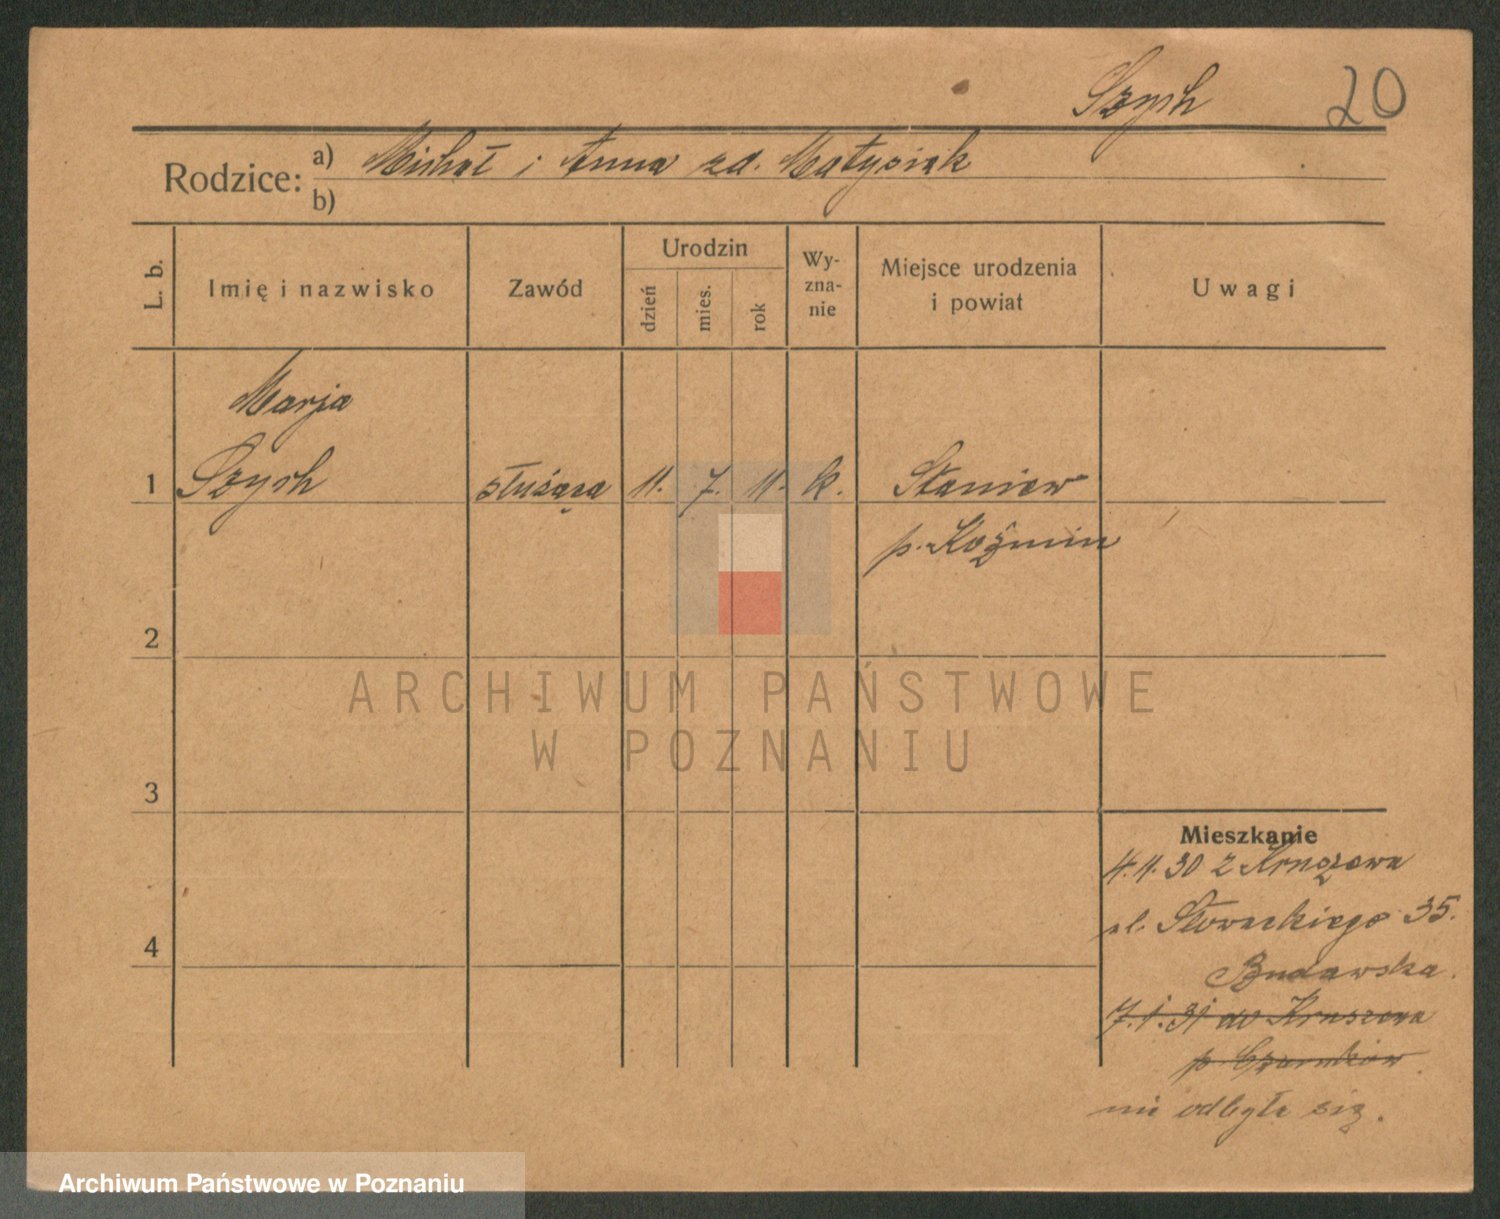 Szych 20
Rodzice: a) Michał i Anna zd. Matysiak
b)
L. b. Imię i nazwisko Zawód Urodzin dzień mies. rok Wy-zna-nie Miejsce urodzenia i powiat Uwagi
Marja
1 Szych służąca 11. 7. 11. k. Staniew
p. Koźmin
2
ARCHIWUM PAŃSTWOWE
W POZNANIU
3
Mieszkanie
4.11.30 z Kruszewa
ul. Słowackiego 35.
4
7.1.31 do Kruszewa
p. Czarnków
nie odbyła się.
Archiwum Państwowe w Poznaniu